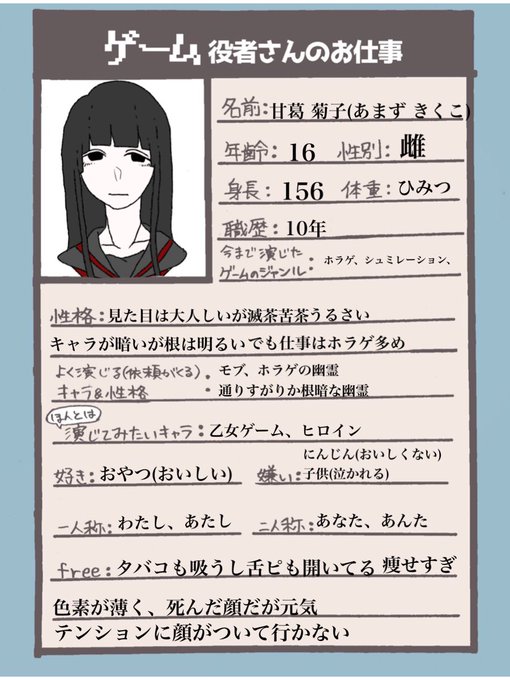 ゲーム役者さんのお仕事
名前:甘葛 菊子(あまず きくこ)
年齢:16 性別:雌
身長:156 体重:ひみつ
職歴:10年
今まで演じた
ゲームのジャンル:ホラゲ、シュミレーション、
性格:見た目は大人しいが滅茶苦茶うるさい
キャラが暗いが根は明るいでも仕事はホラゲ多め
よく演じる(依頼がくる):モブ、ホラゲの幽霊
キャラ&性格:通りすがりか根暗な幽霊
ほんとは
演じてみたいキャラ:乙女ゲーム、ヒロイン
にんじん(おいしくない)
好き:おやつ(おいしい) 嫌い:子供(泣かれる)
一人称:わたし、あたし 二人称:あなた、あんた
free:タバコも吸うし舌ピも開いてる 痩せすぎ
色素が薄く、死んだ顔だが元気
テンションに顔がついて行かない